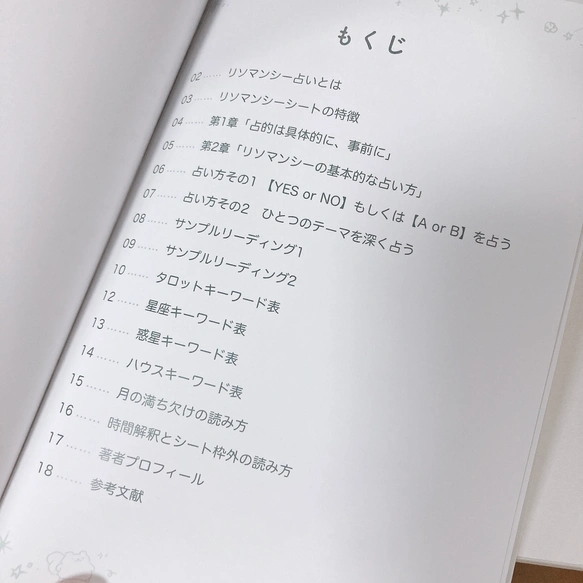 もくじ
02…… リソマンシー占いとは
03…… リソマンシーシートの特徴
04…… 第1章「占的は具体的に、事前に」
05…… 第2章「リソマンシーの基本的な占い方」
06…… 占い方その1 【YES or NO】もしくは【A or B】を占う
07…… 占い方その2 ひとつのテーマを深く占う
08…… サンプルリーディング1
09…… サンプルリーディング2
10…… タロットキーワード表
12…… 星座キーワード表
13…… 惑星キーワード表
14…… ハウスキーワード表
15…… 月の満ち欠けの読み方
16…… 時間解釈とシート枠外の読み方
17…… 著者プロフィール
18…… 参考文献